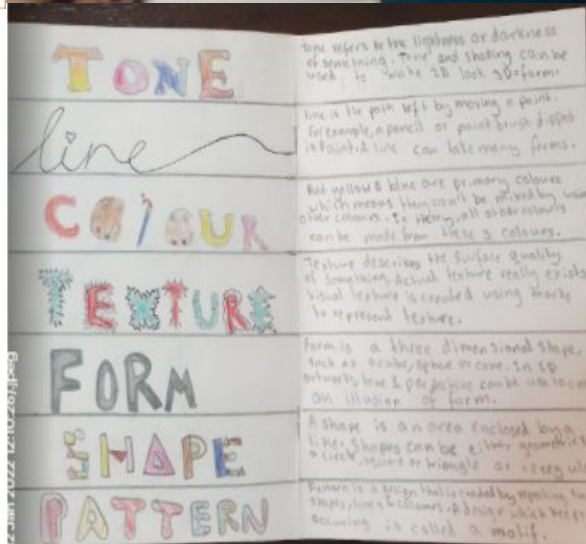 TONE
Tone refers to the lightness or darkness
of something. Tone and shading can be
used to make 2D look 3D=form.
line
line is the path left by moving a point.
For example, a pencil or paint brush dipped
in Paint. A line can take many forms.
COLOUR
Red yellow & blue are primary colours
which means they can't be mixed by
other colours. In theory, all other colours
can be made from these 3 colours.
TEXTURE
Texture describes the surface quality
of something. Actual texture really exists
Visual texture is created using marks
to represent texture.
FORM
Form is a three dimensional shape
such as a cube, sphere or cone. In 2D
artworks, tone & perspective can be use to
an illusion of form.
SHAPE
A shape is an area enclosed by a
line. Shapes can be either geometric
a circle, square or triangle or
PATTERN
Pattern is a design that is created by repeating
shapes, lines & colours. A design which
occuring is called a motif.